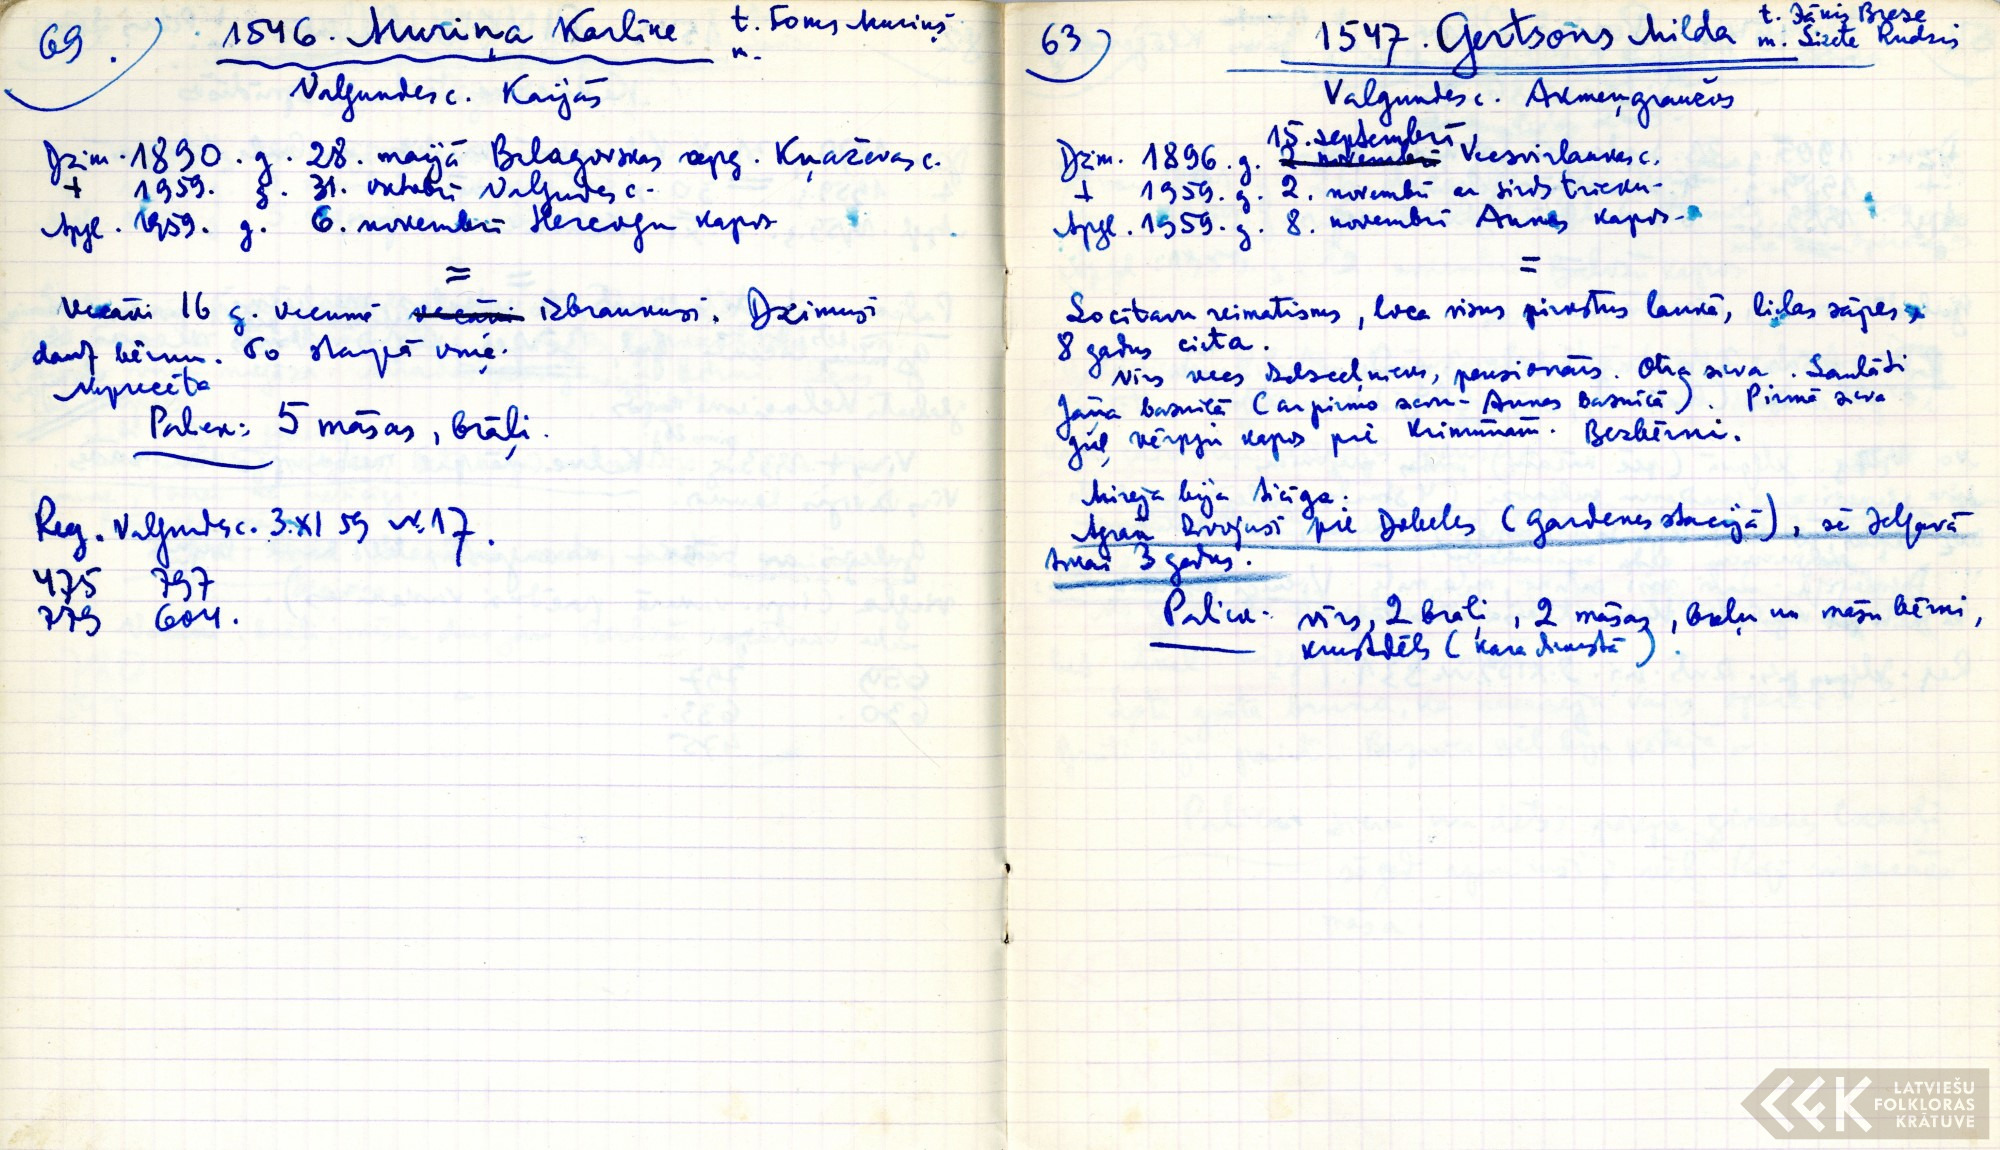 69.
1546. Muriņa Karlīne t. Toms Muriņš
m.
Valgundes c. Kaijās
Dzim. 1890. g. 28. maijā Belagovskas apg. Kņaževas c.
+ 1959. g. 31. oktobrī Valgundes c.
Apgl. 1959. g. 6. novembrī Hercogu kapos
=
Vecāki 16 g. vecumā izbraukusi. Dzimuši
daudz bērnu. To starpā viņa.
Neprecēta
Paliek: 5 māsas, brāļi.
Reg. Valgundes c. 3. XI 59 nr. 17.
475 797
779 604.
63
1547. Gertsons Milda t. Jānis Breže
m. Lizete Rudzis
Valgundes c. Akmeņgraužos
15. septembrī,
Dzim. 1896. g. 2 novembrī Vecsvirlaukas c.
+ 1959. g. 2. novembrī ar sirds trieku
Apgl. 1959. g. 8. novembrī Annas kapos
=
Locītavu reimatisms, loca visus pirkstus laukā, lielas sāpes
8 gadus cieta.
Vīrs vecs dzelzceļnieks, pensionārs. Otra sieva. Saulāti
Jāņa baznīcā (ar pirmo sievu - Annas baznīcā). Pirmā sieva
guļ Vērpju kapos pie Krimūnām. Bezbērni.
Mireja bija sicīga.
Agrāk dzīvojusi pie Dobeles (Gardenes stacijā), še Jelgavā
tikai 3 gadus.
Paliek: vīrs, 2 brāļi, 2 māsas, brāļu un māsu bērni,
krustdēls (kara dienestā).
LATVIEŠU
FOLKLORAS
KRĀTUVE